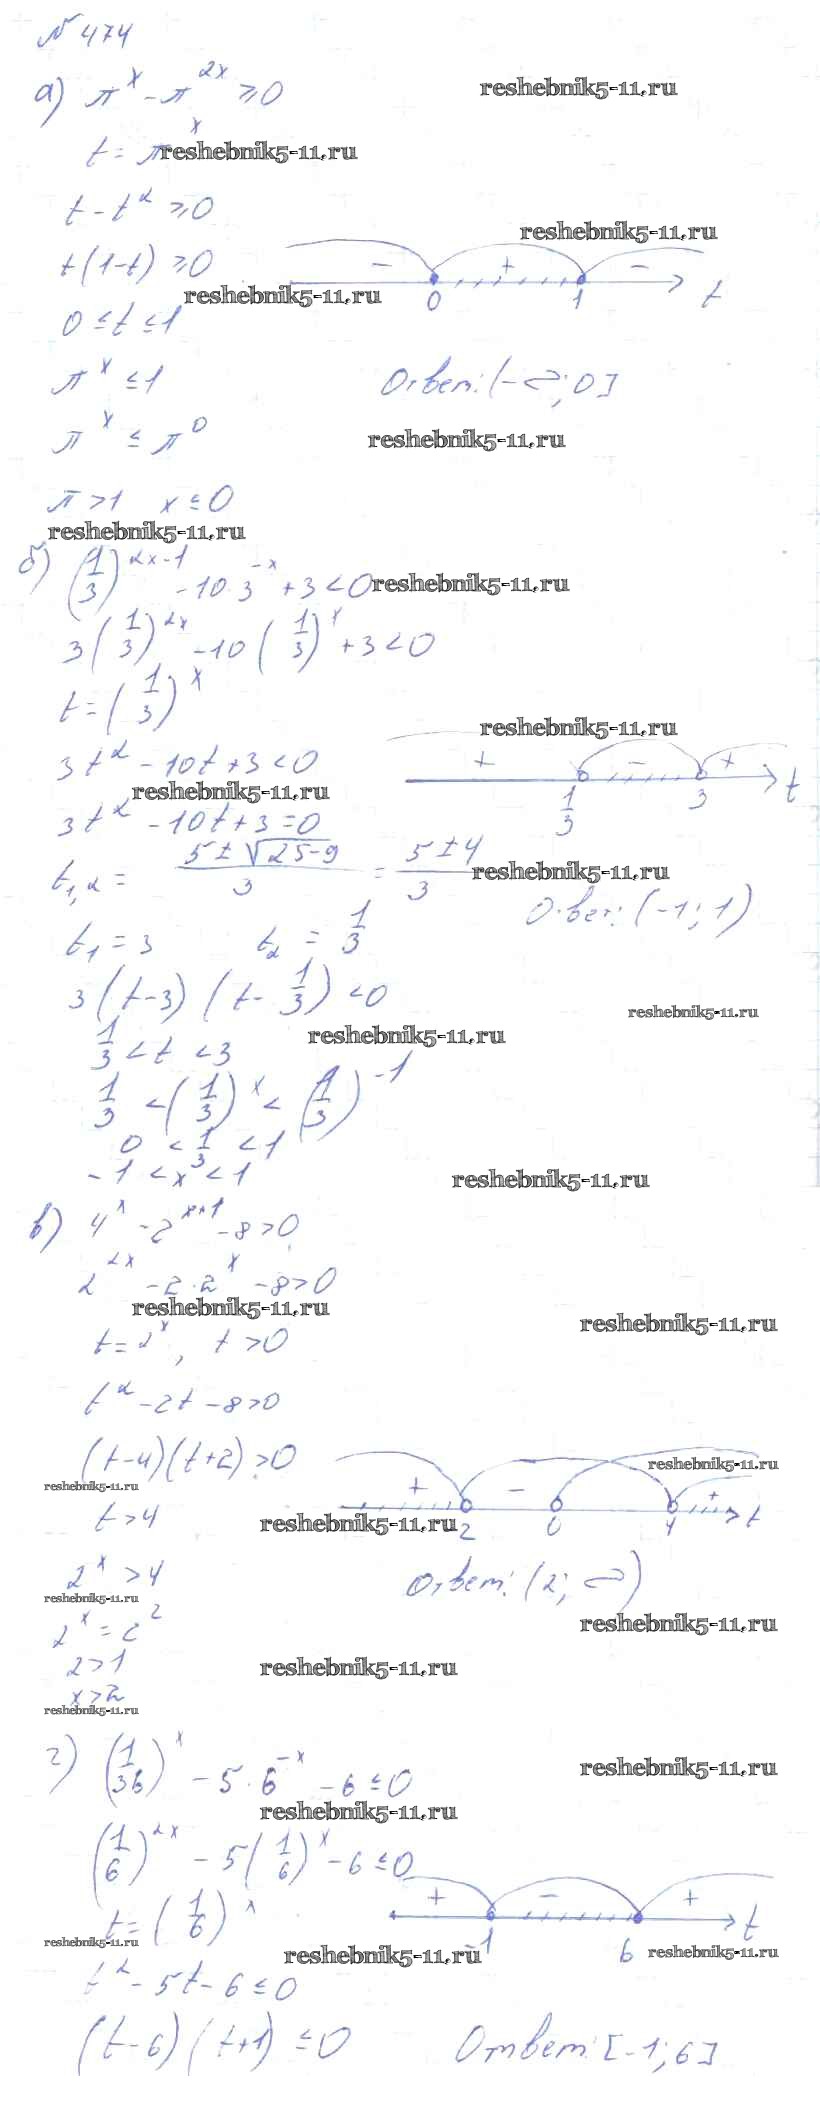 № 474
а) π^x - π^{2x} ≥ 0
reshebnik5-11.ru
t = π^x
reshebnik5-11.ru
t - t² ≥ 0
reshebnik5-11.ru
t(1-t) ≥ 0
- + -
reshebnik5-11.ru
0 1 t
0 ≤ t ≤ 1
π^x ≤ 1 Ответ: (-∞; 0]
π^x ≤ π^0
reshebnik5-11.ru
π > 1 x ≤ 0
reshebnik5-11.ru
б) (1/3)^{2x-1} - 10·3^{-x} + 3 < 0
reshebnik5-11.ru
3(1/3)^{2x} - 10(1/3)^x + 3 < 0
t = (1/3)^x
reshebnik5-11.ru
3t² - 10t + 3 < 0
+ - +
1/3 3 t
reshebnik5-11.ru
3t² - 10t + 3 = 0
t_{1,2} = (5 ± √(25-9))/3 = (5 ± 4)/3
reshebnik5-11.ru
Ответ: (-1; 1)
t_1 = 3 t_2 = 1/3
3(t-3)(t - 1/3) < 0
reshebnik5-11.ru
1/3 < t < 3
reshebnik5-11.ru
1/3 < (1/3)^x < (1/3)^{-1}
0 < 1/3 < 1
-1 < x < 1
reshebnik5-11.ru
в) 4^x - 2^{x+1} - 8 > 0
2^{2x} - 2·2^x - 8 > 0
reshebnik5-11.ru
reshebnik5-11.ru
t = 2^x, t > 0
t² - 2t - 8 > 0
(t-4)(t+2) > 0
reshebnik5-11.ru
reshebnik5-11.ru
+ - +
t > 4
reshebnik5-11.ru
2 0 4 t
2^x > 4
Ответ: (2; ∞)
reshebnik5-11.ru
reshebnik5-11.ru
2^x = 2²
2 > 1
reshebnik5-11.ru
x > 2
reshebnik5-11.ru
г) (1/36)^x - 5·6^{-x} - 6 ≤ 0
reshebnik5-11.ru
reshebnik5-11.ru
(1/6)^{2x} - 5(1/6)^x - 6 ≤ 0
+ - +
t = (1/6)^x
-1 6 t
reshebnik5-11.ru
reshebnik5-11.ru
reshebnik5-11.ru
t² - 5t - 6 ≤ 0
(t-6)(t+1) ≤ 0 Ответ: [-1; 6]